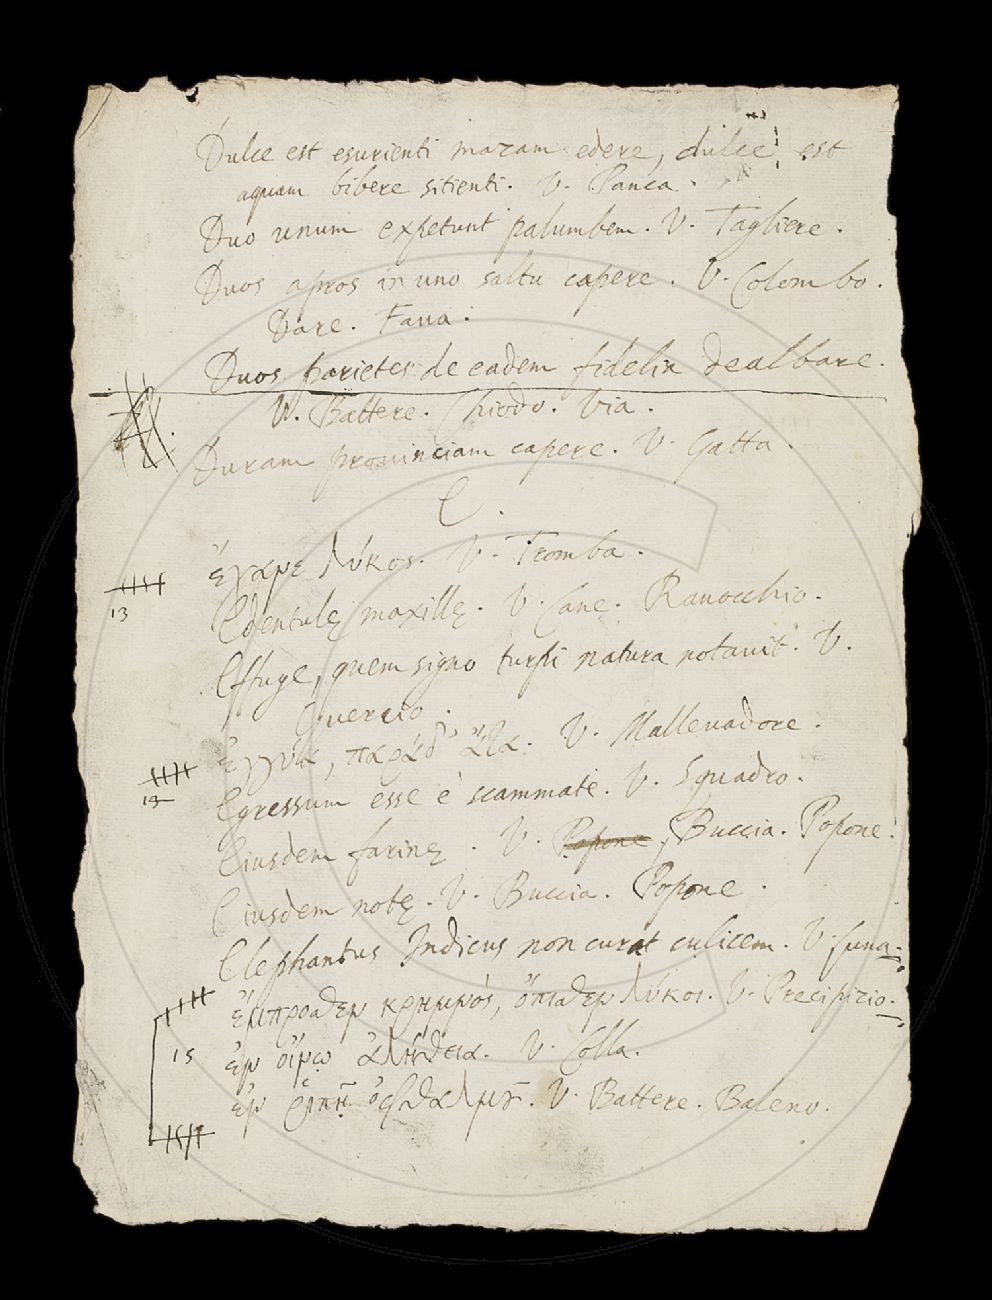 Dulce est esurienti mazam edere, dulce est
aquam bibere sitienti. V. Panca.
Duo unum expetunt palumbem. V. Tagliere.
Duos apros in uno saltu capere. V. Colombo.
Dare. Faua.
Duos parietes de eadem fidelia dealbare.
V. Battere. Chiodo. Via.
Duram prouinciam capere. V. Gatta.
E.
λύκος. V. Tromba.
13
Edentulę maxillę. V. Cane. Ranocchio.
Effuge, quem signo turpi natura notauit. V.
Guercio.
ἐγγύα, παρὰ δ' ἄτα. V. Malleuadore.
13
Egressum esse è scammate. V. Squadro.
Eiusdem farinę. V. Popone, Buccia. Popone.
Eiusdem notę. V. Buccia. Popone.
Elephantus Indicus non curat culicem. V. Luna.
ἔμπροσθεν κρημνός, ὄπισθεν λύκοι. V. Precipizio.
15
ἐν οἴνῳ ἀλήθεια. V. Colla.
ἐν ῥιπῇ ὀφθαλμοῦ. V. Battere. Baleno.